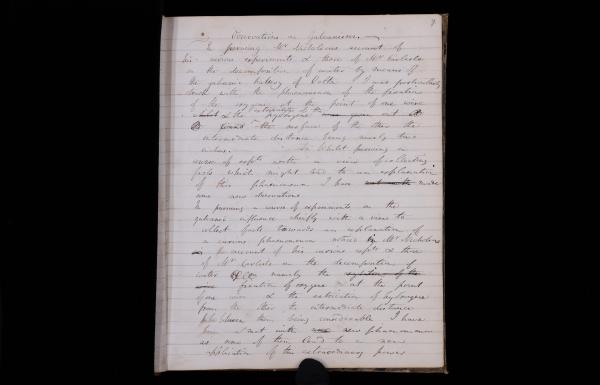 7
Observations on Galvanism.
In perusing Mr Nicholsons account of
his curious experiments & those of Mr Carlisle
on the decomposition of water by means of
the galvanic battery of Volta I was particularly
struck with the phenomenon of the fixation
of the oxygene at the point of one wire
the hydrogene out
the surface of the other the
intermediate distance being nearly two
inches. In Whilst pursuing a
series of expts with a view of collecting
facts which might lead to an explanation
of this phaenomenon I have made
some new observations
In pursuing a series of experiments on the
galvanic influence chiefly with a view to
collect facts towards an explanation of
a curious phaenomenon noticed by Mr Nicholson
in the account of his curious expts & those
of Mr Carlisle on the decomposition of
water namely the of the
wire fixation of oxygene at the point
of one wire & the extrication of hydrogene
from the other the intermediate distance
between them being considerable I have
met with new phaenomenon
as some of them lead to a new
application of this extraordinary power